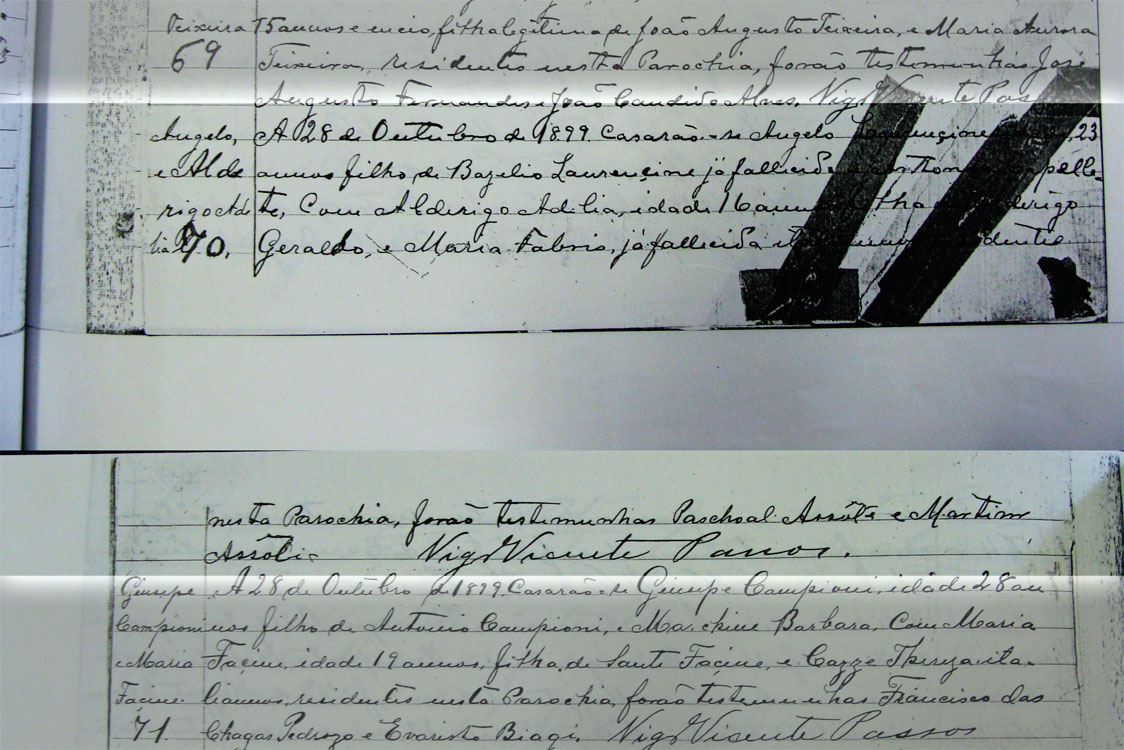 Teixeira 15 annos e meio, filha legitima de João Augusto Teixeira, e Maria Aurora
69 Teixeira, residentes nesta Parochia, forão testemunhas José
Augusto Fernandes e João Candido Alves. Vigrº Vicente
Angelo, A 28 de Outubro de 1899. Casarão-se Angelo 23
e Alde annos filho, de Bazilio Laurençine já fallecido pelle-
rigo Adi te, Com Alderigo Adilia, idade 16
lia 70. Geraldo, e Maria Fabris, já fallecida
nesta Parochia, forão testemunhas Paschoal Assôle e Martim
Assôli- Vigrº Vicente Passos.
Giusepe A 28 de Outubro de 1899. Casarão-se Giusepe Campioni, idade 28 an
Campioni nos filho de Antonio Campioni, e Marchine Barbara. Com Maria
e Maria Façine, idade 19 annos, filha, de Sante Façine, e Cazze Thereza ita-
Façine lianos, residentes nesta Parochia, forão testemunhas Francisco das
71. Chagas Pedrozo e Evaristo Biagi. Vigrº Vicente Passos